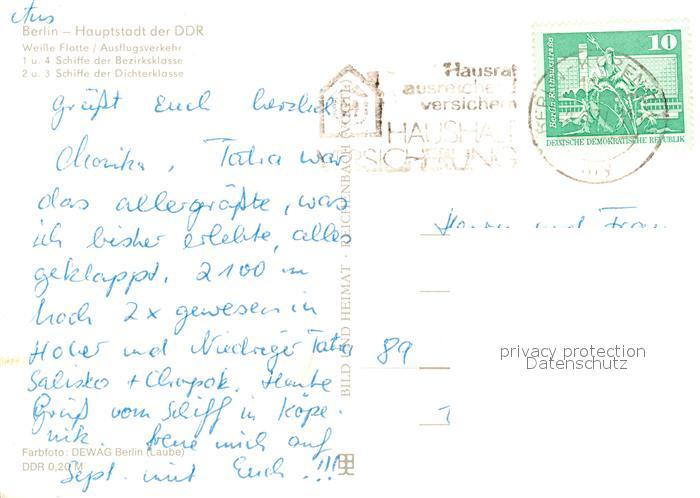 Berlin – Hauptstadt der DDR
Weiße Flotte / Ausflugsverkehr
1 u. 4 Schiffe der Bezirksklasse
2 u. 3 Schiffe der Dichterklasse
Grüßt Euch herzlich
Monika, Tatra war
das allergrößte, was
ich bisher erlebte, alles
geklappt. 2100 m
hoch 2x gewesen in
Hoher und Niedriger Tatra 89
Salisko + Chopok. Heute
Gruß vom Schiff in Köpe-
nik. Freue mich auf
Sept. mit Euch !!!
Farbfoto: DEWAG Berlin (Laube)
DDR 0,20 M
BILD UND HEIMAT · REICHENBACH
Hausrat
ausreichend
versichern
HAUSHALT
VERSICHERUNG
10
Berlin, Rathausstraße
DEUTSCHE DEMOKRATISCHE REPUBLIK
und
privacy protection
Datenschutz